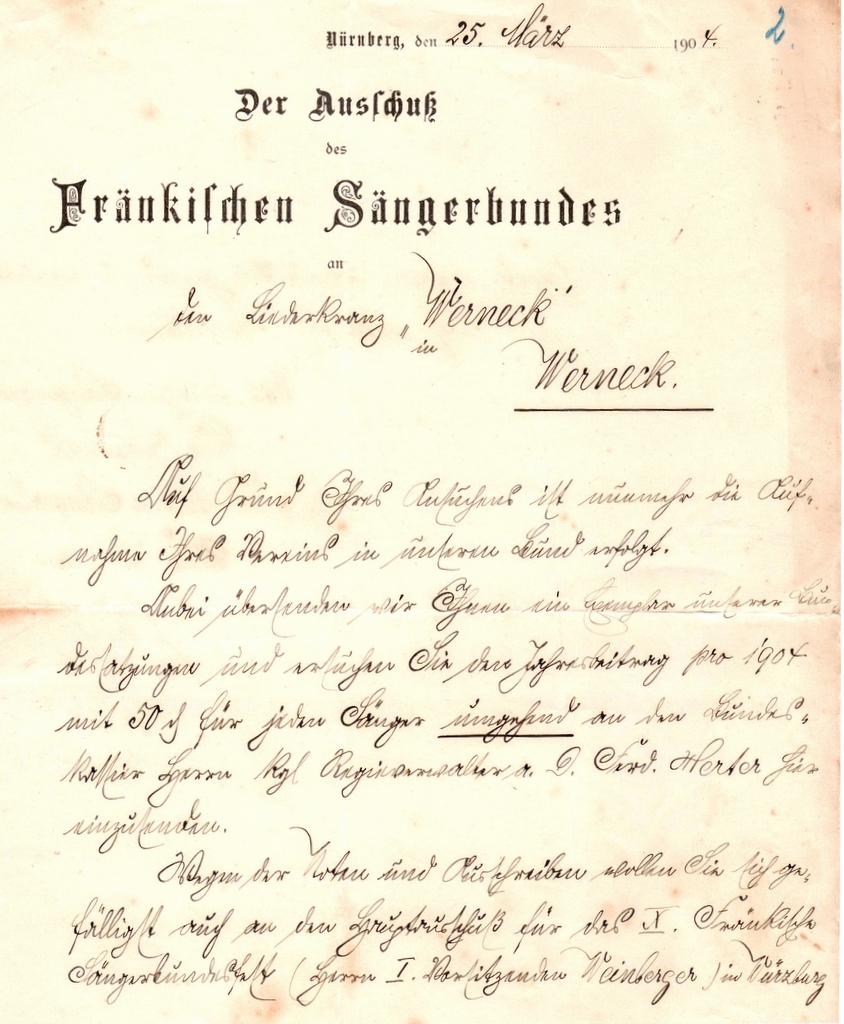 Nürnberg, den 25. März 1904.
2.
Der Ausschuß
des
Fränkischen Sängerbundes
an
den Liederkranz „Werneck“
in
Werneck.
Auf Grund Ihres Ansuchens ist nunmehr die Auf-
nahme Ihres Vereins in unseren Bund erfolgt.
Anbei übersenden wir Ihnen ein Exemplar unserer Bun-
dessatzungen und ersuchen Sie den Jahresbeitrag pro 1904
mit 50 ₰ für jeden Sänger umgehend an den Bundes-
kassier Herrn Kgl Regieverwalter a. D. Ferd. Herter hier
einzusenden.
Wegen der Noten und Ausschreiben wollen Sie sich ge-
fälligst auch an den Hauptausschuß für das X. Fränkische
Sängerbundesfest (Herrn I. Vorsitzenden Weinberger) in Würzburg